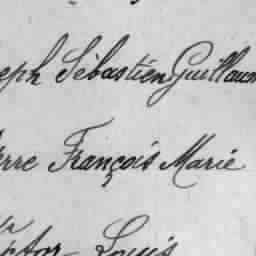 eph Sébastien Guillaum
erre François Marie
Louis